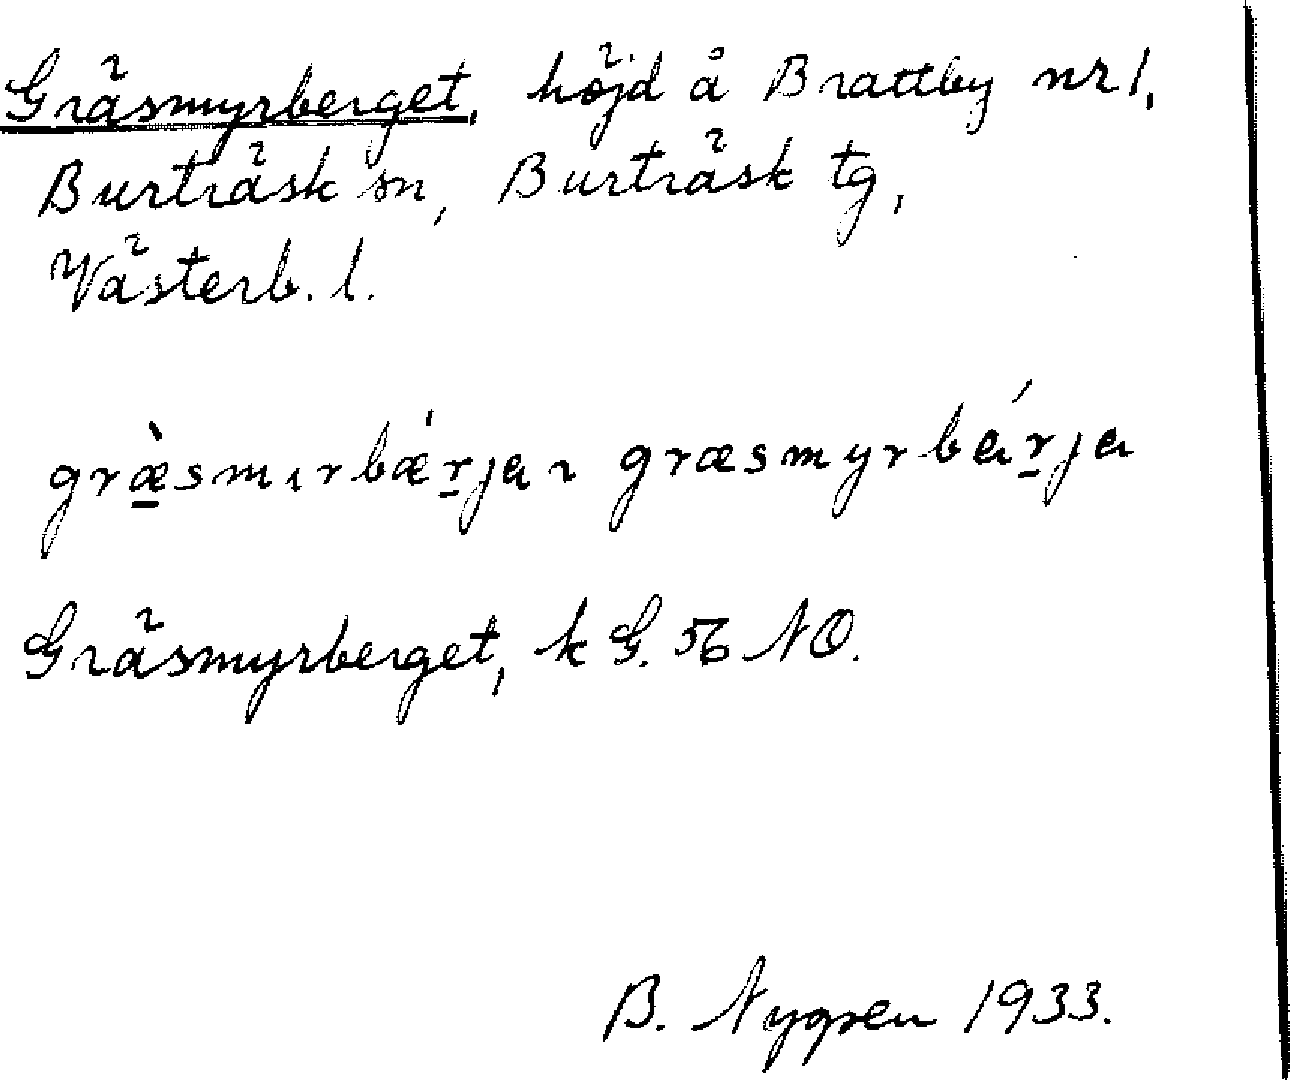 Gräsmyrberget, höjd å Brattby nr 1,
Burträsk sn, Burträsk tg,
Västerb. l.
græ̠̀smırbǽr̠ja ~ græsmyrbár̠ja
Gräsmyrberget, k G. 56 NO.
B. Nygren 1933.